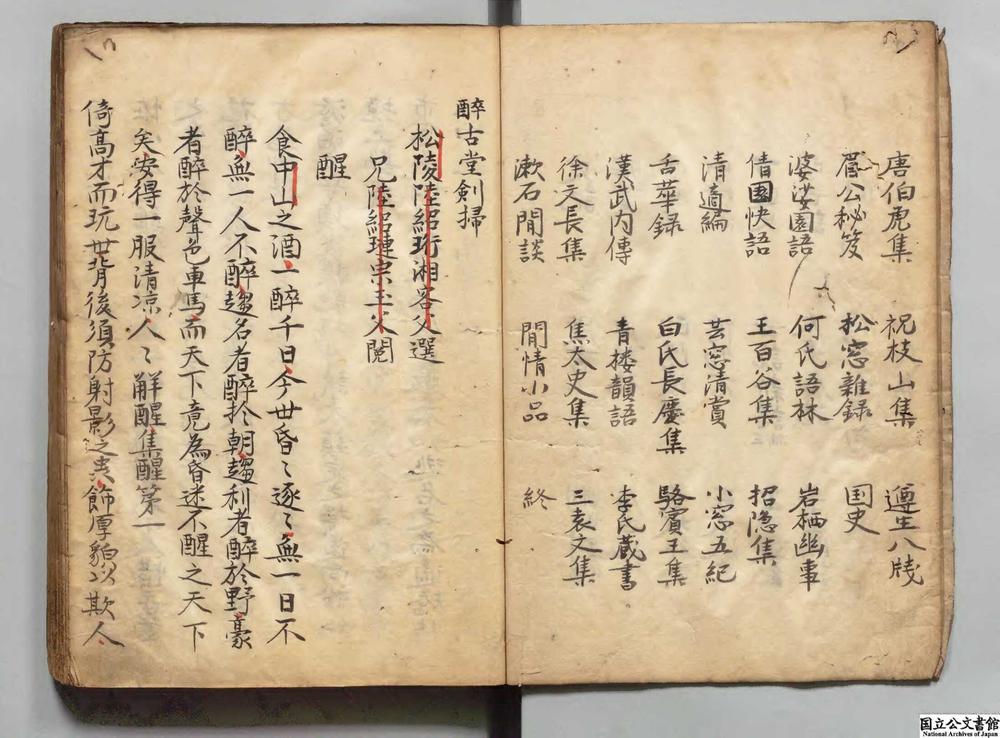 唐伯虎集 祝枝山集 遵生八牋
眉公秘笈 松窓雜録 国史
婆娑園語 何氏語林 岩栖幽事
倩園快語 王百谷集 招隠集
清適編 芸窓清賞 小窓五紀
舌華録 白氏長慶集 駱賓王集
漢武内傳 青楼韻語 李氏蔵書
徐文長集 焦太史集 三袁文集
漱石閒談 閒情小品 終
醉古堂剣掃
松陵陸紹珩湘客父選
兄陸紹璉宗玉父閲
醒
食中山之酒一醉千日今世昏〻逐〻無一日不
醉無一人不醉趨名者醉於朝趨利者醉於野豪
者醉於聲色車馬而天下竟為昏迷不醒之天下
矣安得一服清凉人〻解酲集醒第一
倚高才而玩世背後須防射影之虫飾厚貌以欺人
国立公文書館
National Archives of Japan